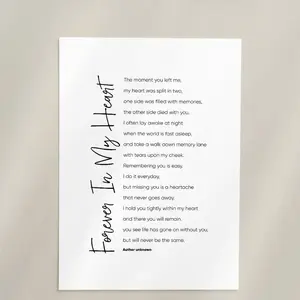 Forever In My Heart
The moment you left me,
my heart was split in two,
one side was filled with memories,
the other side died with you.
I often lay awake at night
when the world is fast asleep,
and take a walk down memory lane
with tears upon my cheek.
Remembering you is easy,
I do it everyday,
but missing you is a heartache
that never goes away.
I hold you tightly within my heart
and there you will remain.
you see life has gone on without you,
but will never be the same.
Author unknown